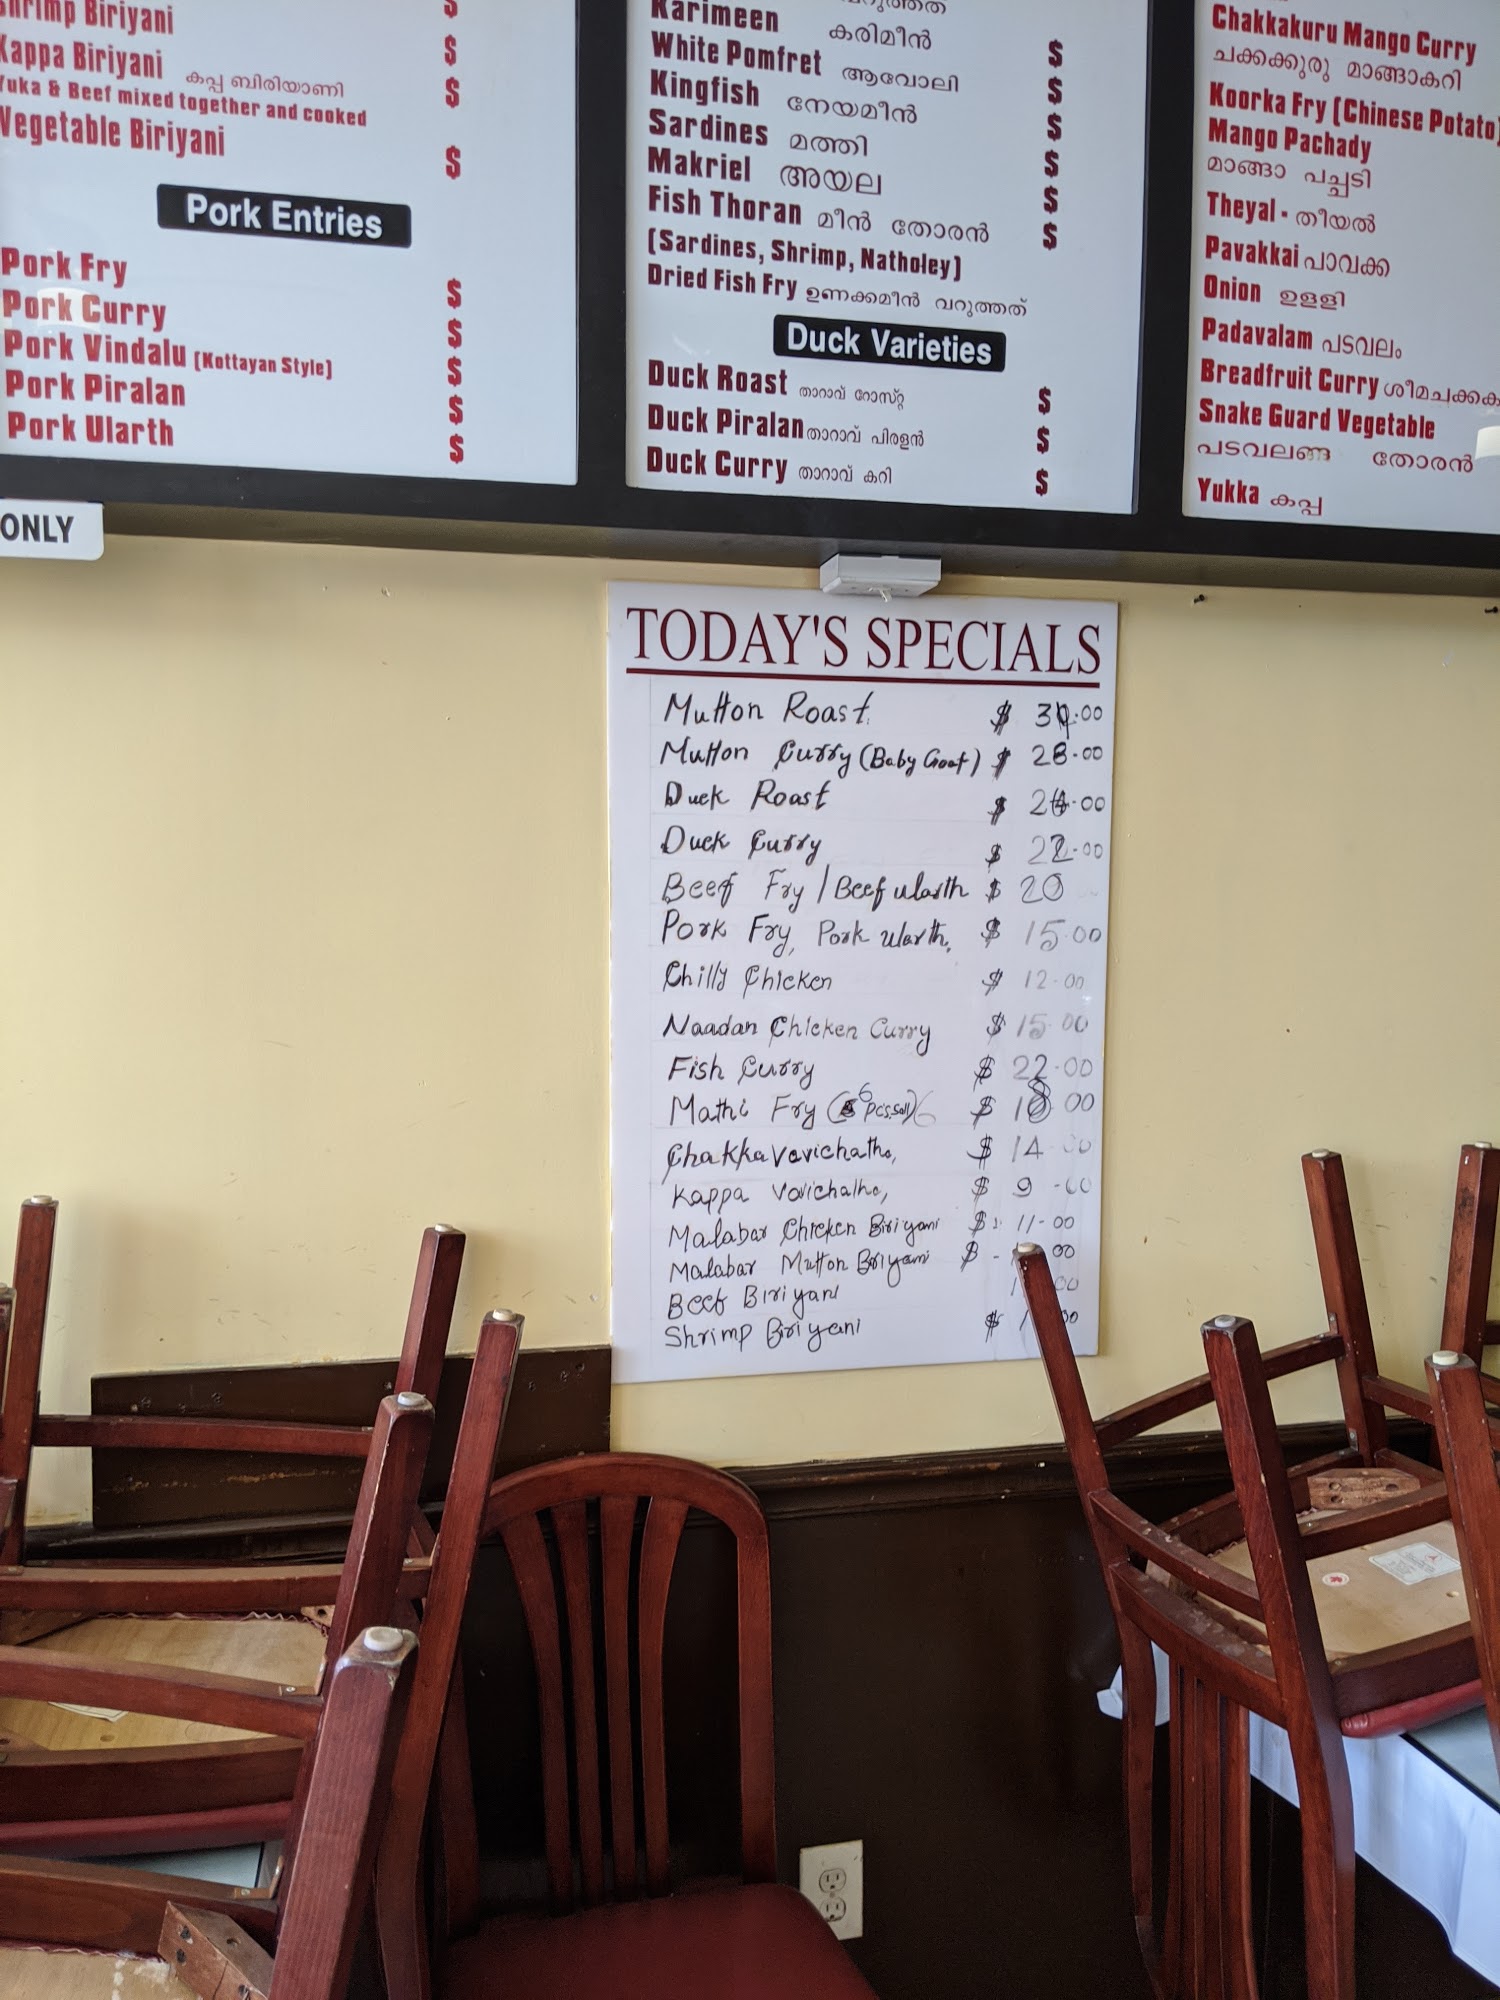 Shrimp Biriyani $
Kappa Biriyani കപ്പ ബിരിയാണി $
Yuka & Beef mixed together and cooked
Vegetable Biriyani $
Pork Entries
Pork Fry $
Pork Curry $
Pork Vindalu (Kottayan Style) $
Pork Piralan $
Pork Ularth $
ONLY
വറുത്തത്
Karimeen കരിമീൻ $
White Pomfret ആവോലി $
Kingfish നേയമീൻ $
Sardines മത്തി $
Makriel അയല $
Fish Thoran മീൻ തോരൻ $
(Sardines, Shrimp, Natholey)
Dried Fish Fry ഉണക്കമീൻ വറുത്തത്
Duck Varieties
Duck Roast താറാവ് റോസ്റ്റ $
Duck Piralan താറാവ് പിരളൻ $
Duck Curry താറാവ് കറി $
Chakkakuru Mango Curry
ചക്കക്കുരു മാങ്ങാകറി
Koorka Fry (Chinese Potato)
Mango Pachady
മാങ്ങാ പച്ചടി
Theyal - തീയൽ
Pavakkai പാവക്ക
Onion ഉള്ളി
Padavalam പടവലം
Breadfruit Curry ശീമചക്കക
Snake Guard Vegetable
പടവലങ്ങ തോരൻ
Yukka കപ്പ
TODAY'S SPECIALS
Mutton Roast $ .00
Mutton Curry (Baby Goat) $ 28.00
Duck Roast $ 24.00
Duck Curry $ 22.00
Beef Fry / Beef ularth $ 20
Pork Fry, Pork ularth, $ 15.00
Chilly Chicken $ 12.00
Naadan Chicken Curry $ 15.00
Fish Curry $ 22.00
Mathi Fry (6 pcs. $ 18.00
Chakka Vevichatho, $ 14.00
Kappa Vevichatho, $ 9.00
Malabar Chicken Biriyani $ 11.00
Malabar Mutton Biriyani $ 00
Beef Biriyani 00
Shrimp Biriyani $ 00